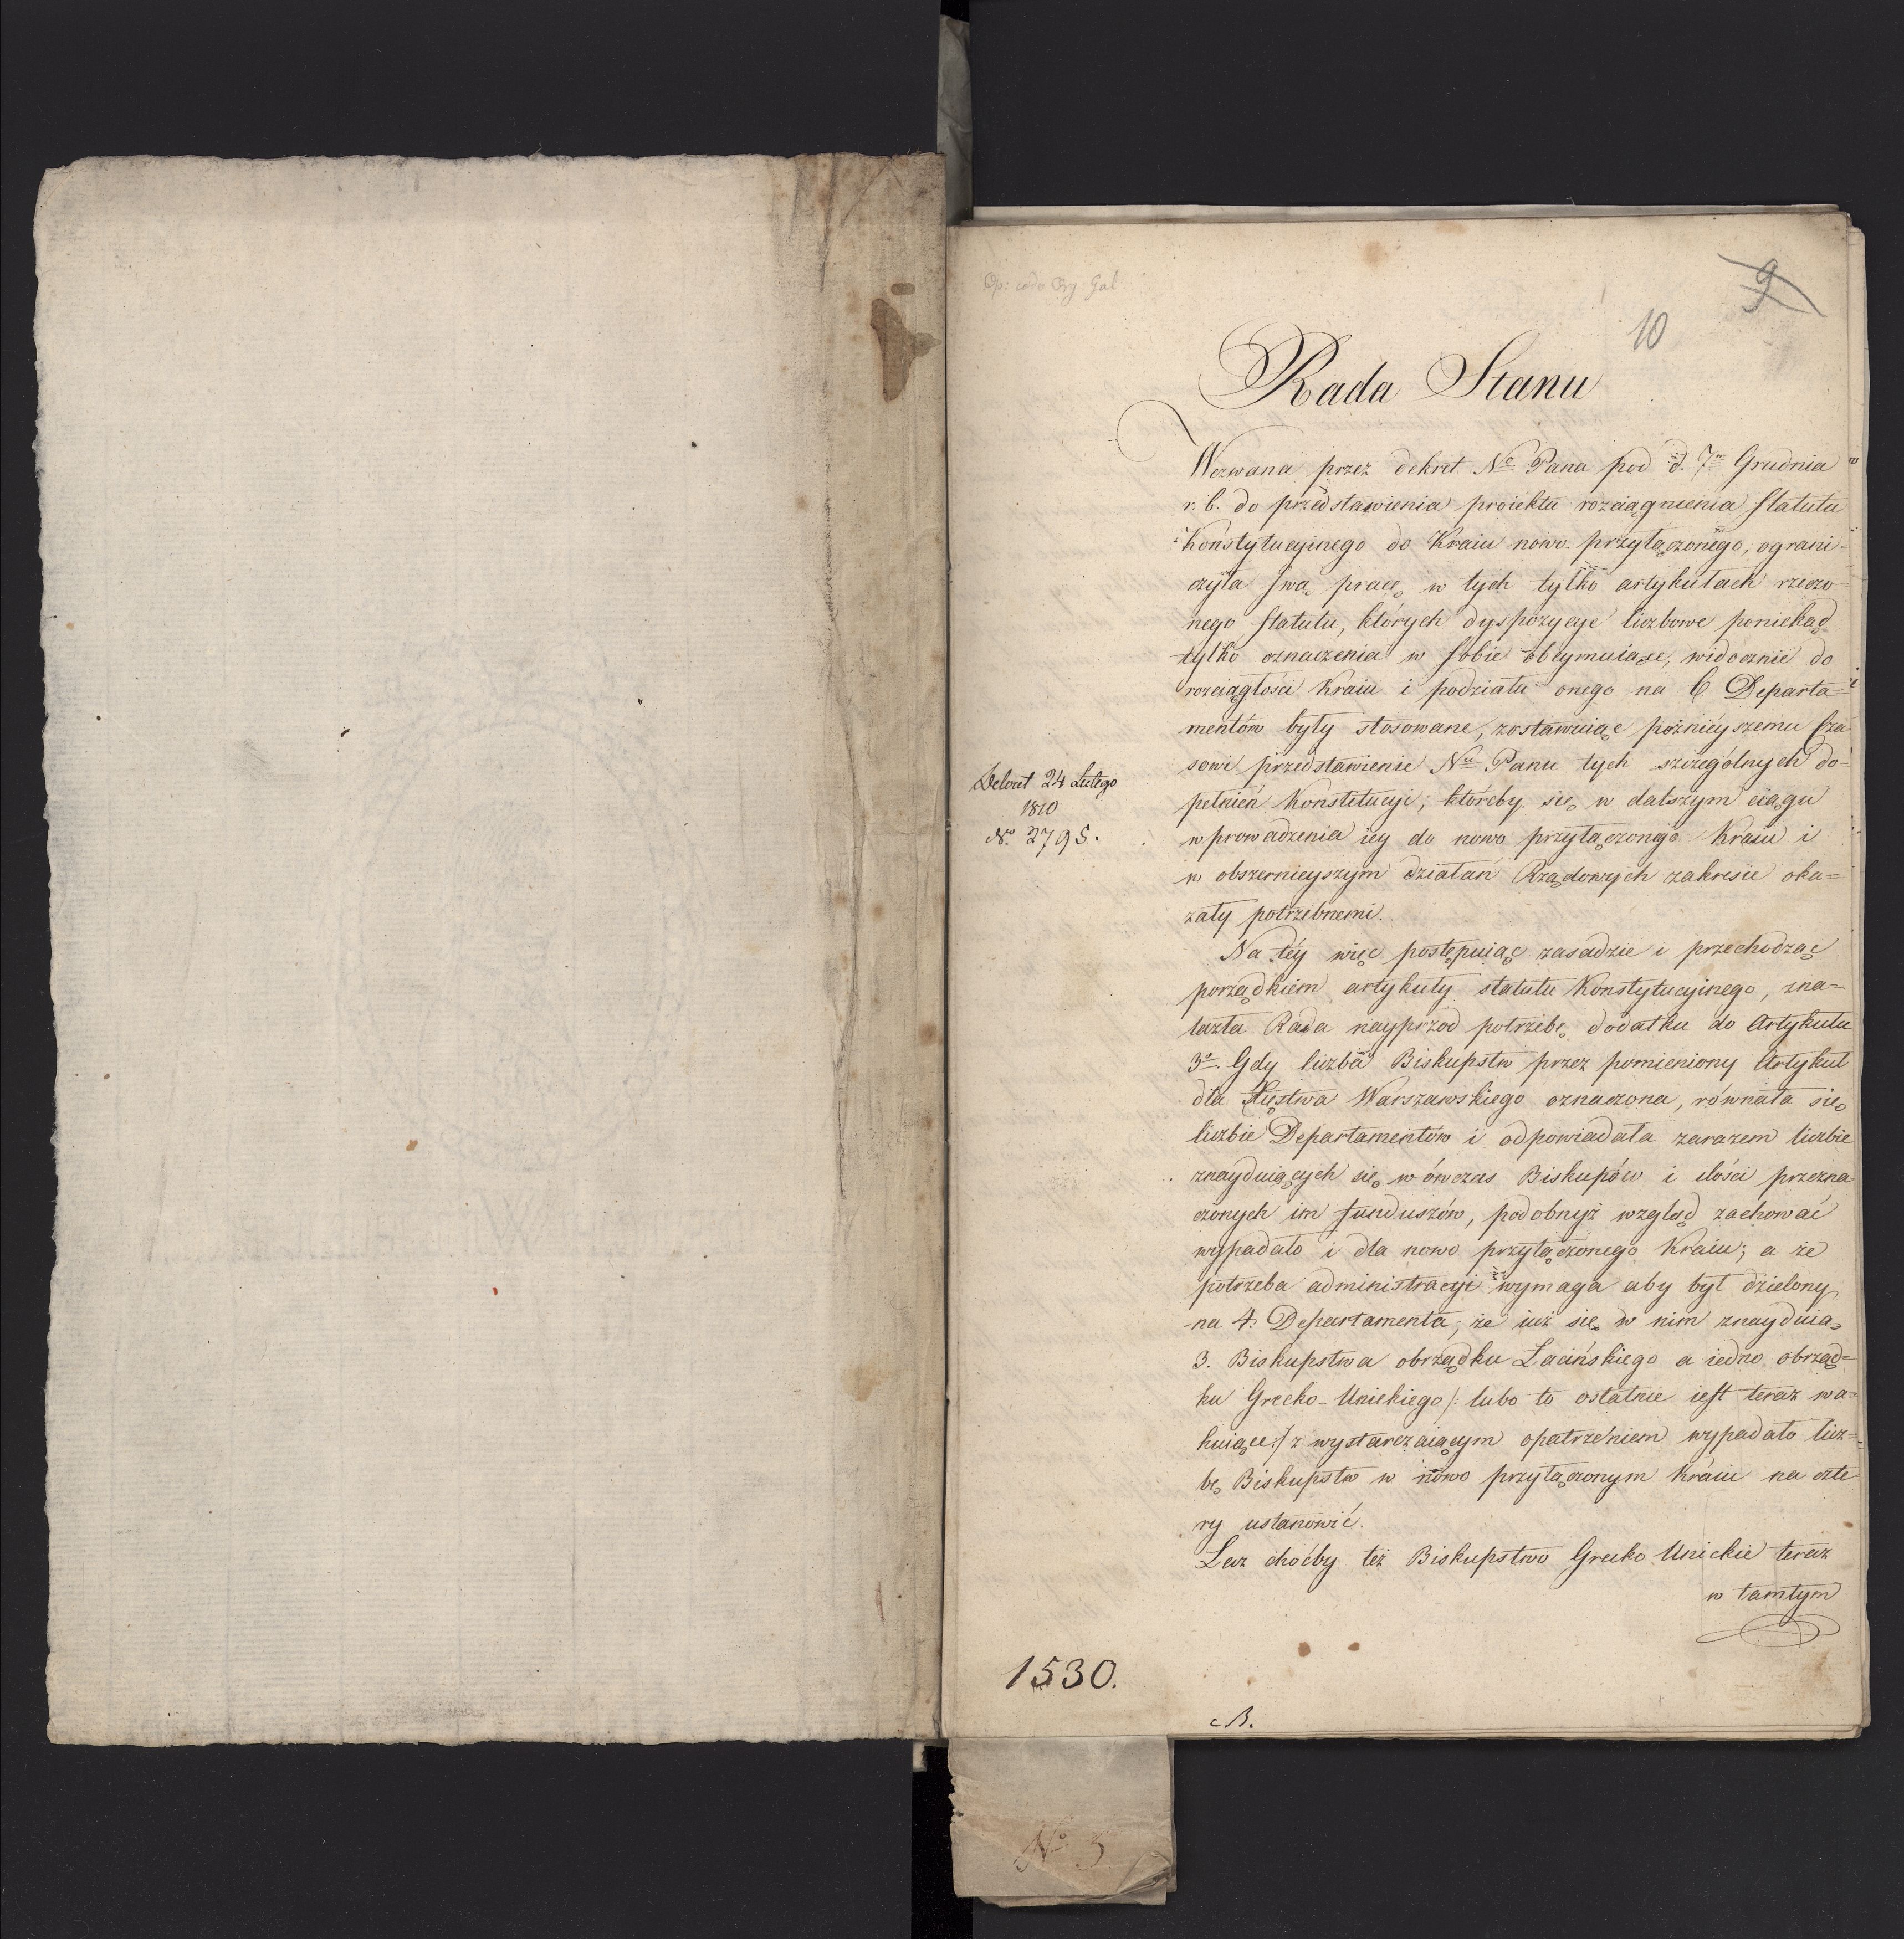 Op: co do Org. Gal
9
10
Rada Stanu
Wezwana przez dekret Nº Pana pod d. 7m Grudnia
r. b. do przedstawienia proiektu rozciągnienia Statutu
Konstytucyinego do Kraiu nowo przyłączonego, ograni-
czyła swą pracę w tych tylko artykułach rzeczo
nego Statutu, których dyspozycye liczbowe poniekąd
tylko oznaczenia w sobie obeymuiące, widocznie do
rozciągłości Kraiu i podziału onego na 6 Departa=
mentów były stosowane, zostawuiąc poźnieyszemu cza
sowi przedstawienie Nu Panu tych szczególnych do=
pełnień Konstitucyi, któreby się w dalszym ciągu
wprowadzenia iey do nowo przyłączonego Kraiu i
w obszernieyszym działań Rządowych zakresie oka=
zały potrzebnemi.
Na téy więc postępuiąc zasadzie i przechodząc
porządkiem artykuły statutu Konstytucyinego, zna=
lazła Rada nayprzod potrzebę dodatku do Artykułu
3º. Gdy liczba Biskupstw przez pomieniony Artykuł
dla Xięstwa Warszawskiego oznaczona, równała się
liczbie Departamentów i odpowiadała zarazem liczbie
znayduiących się wówczas Biskupów i ilości przezna
czonych im funduszów, podobnyż wzgląd zachować
wypadało i dla nowo przyłączonego Kraiu; a że
potrzeba administracyi wymaga aby był dzielony
na 4. Departamenta, że iuż się w nim znayduią
3. Biskupstwa obrządku Łacińskiego a iedno obrząd=
ku Grecko-Unickiego /: lubo to ostatnie iest teraz wa=
kuiące :/ z wystarczaiącym opatrzeniem wypadało licz=
bę Biskupstw w nowo przyłączonym kraiu na czte
ry ustanowić.
Lecz choćby też Biskupstwo Grecko Unickie teraz
w tamtym
Dekret 24 Lutego
1810
Nº. 2795.
1530.
B.
Nº 3.